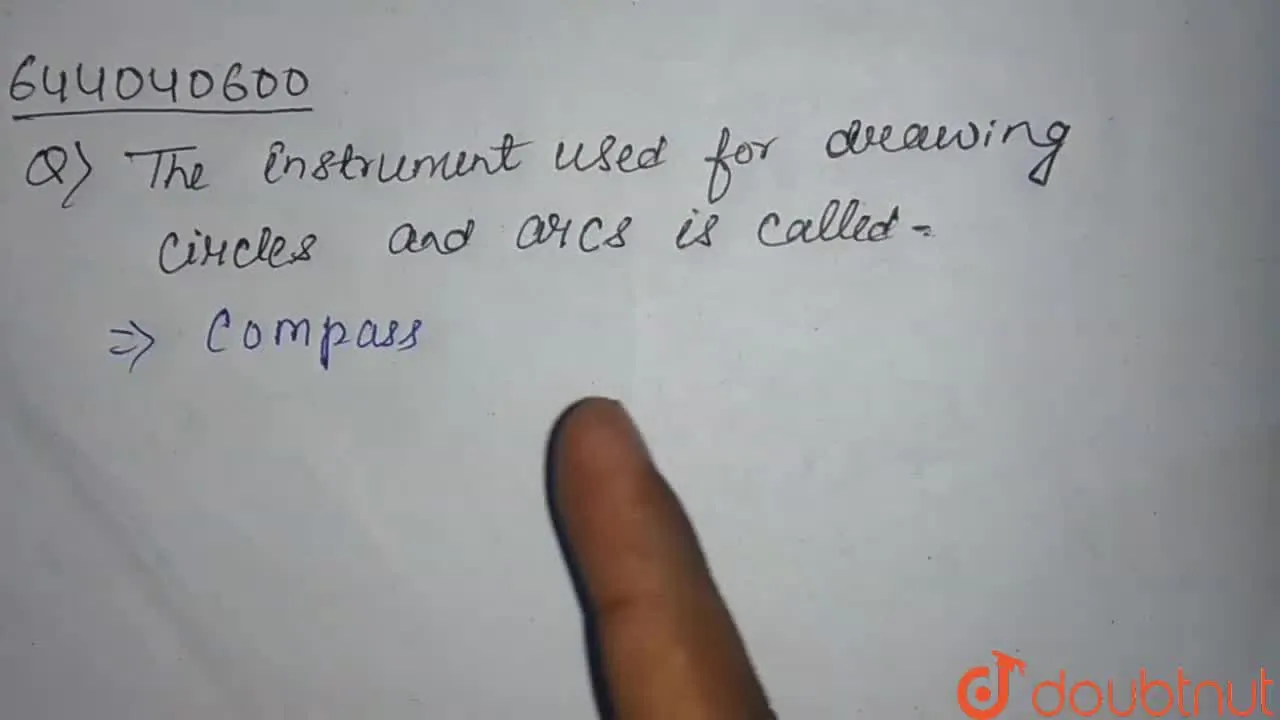 644040600
Q) The instrument used for drawing
circles and arcs is called -
⇒ Compass
doubtnut